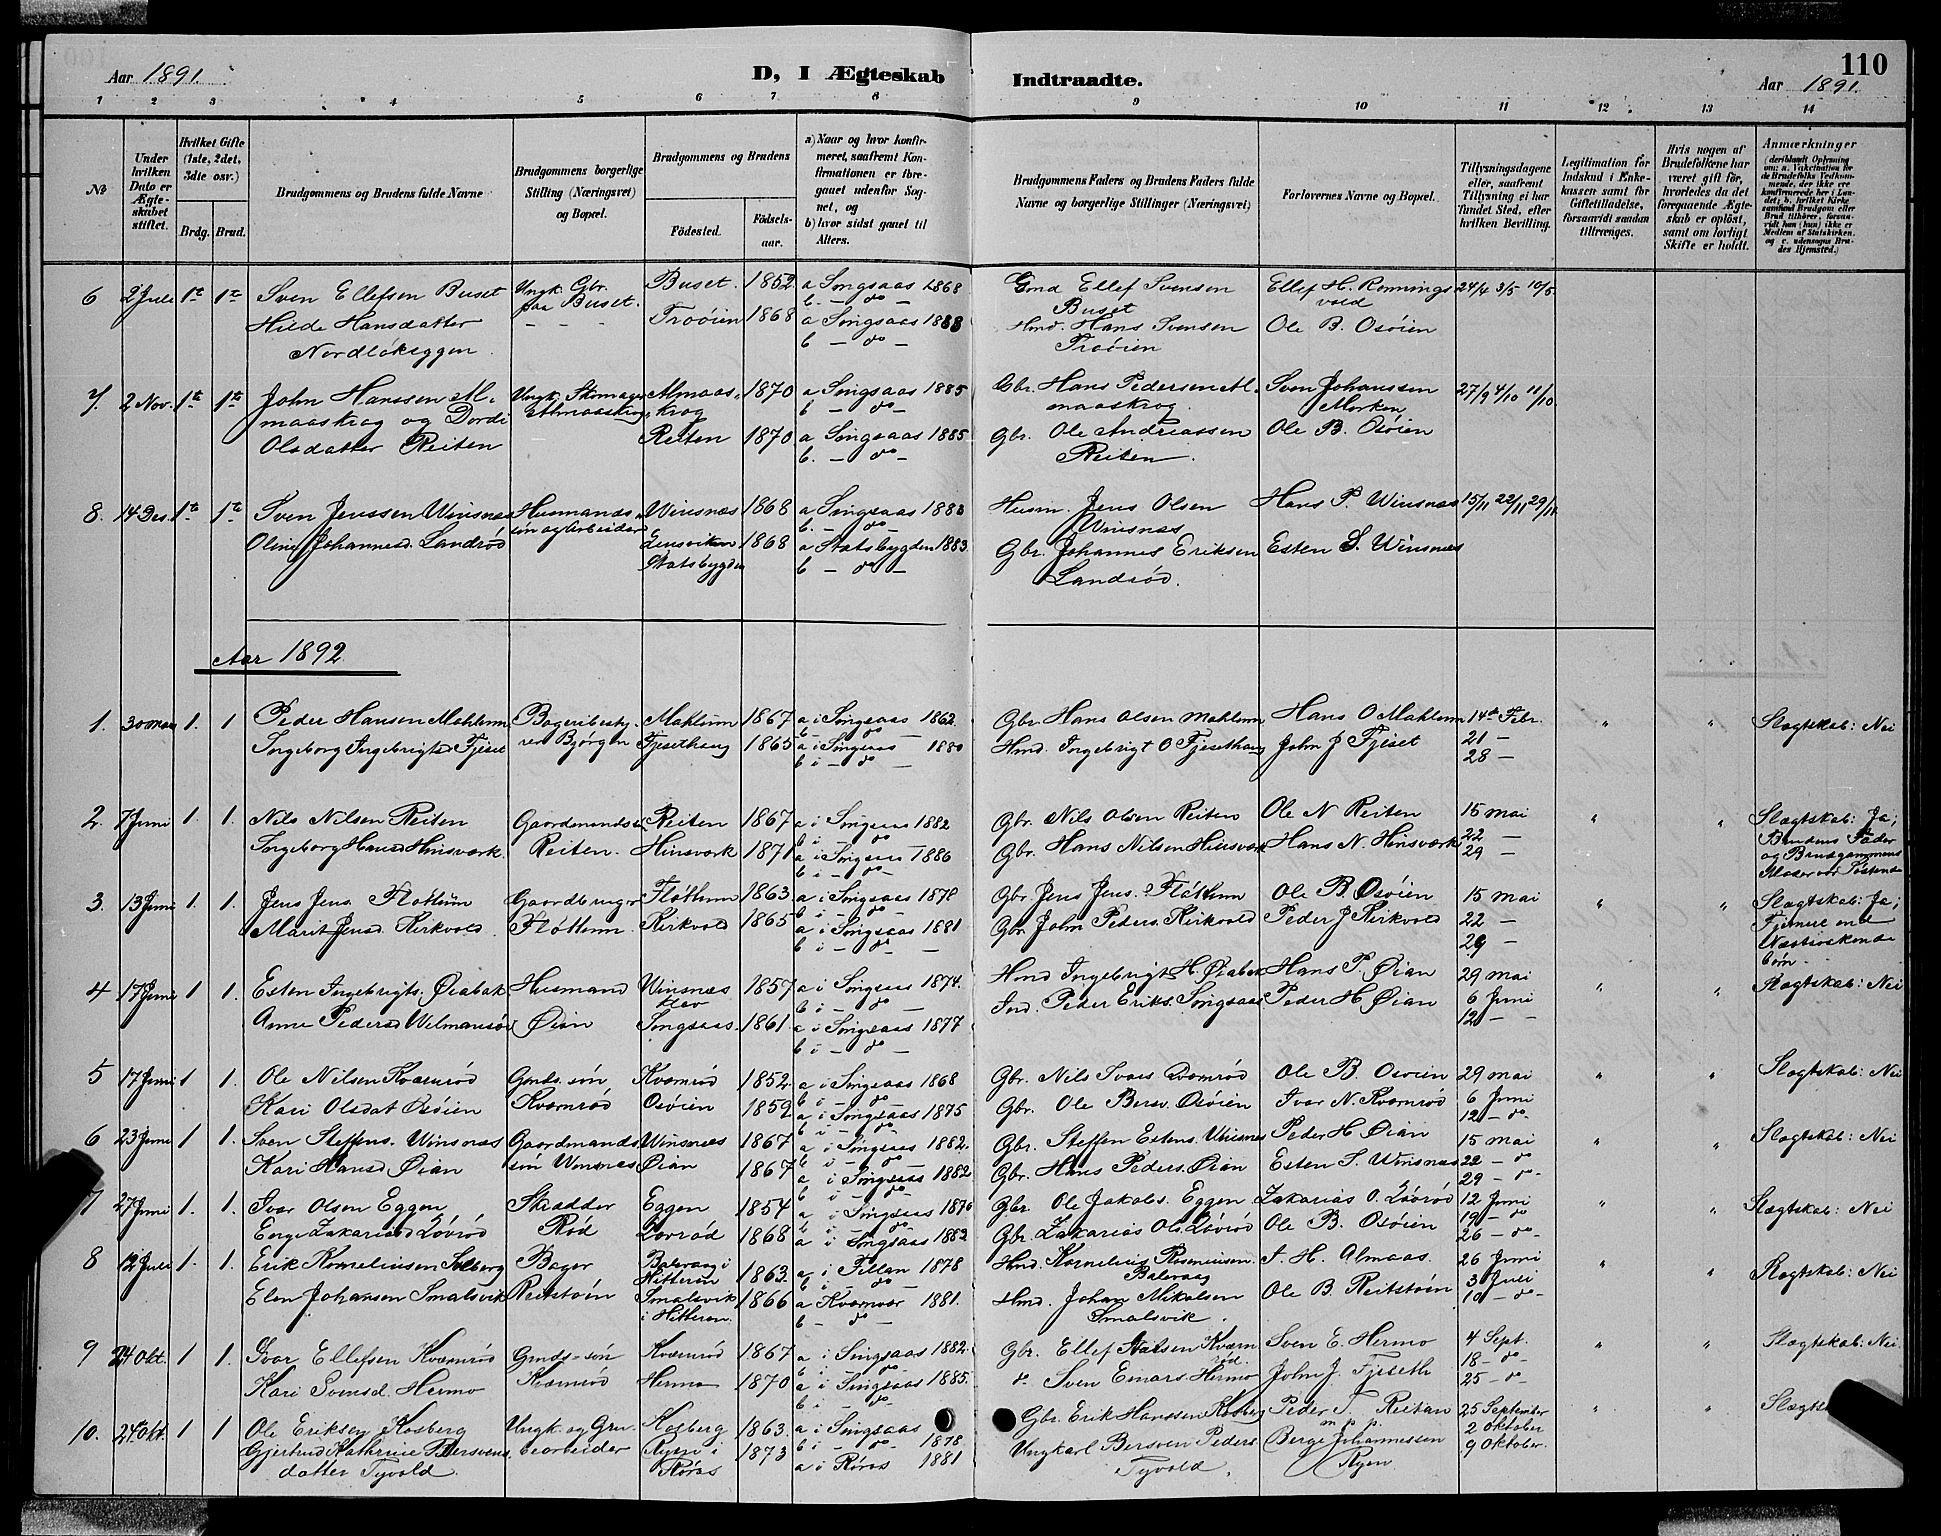 Aar 1891. D, I Ægteskab Indtraadte. 110
Aar 1891.
1 2 3 4 5 6 7 8 9 10 11 12 13 14
№
Under hvilken Dato er Ægteskabet stiftet.
Hvilket Gifte (1ste, 2det, 3die osv.)
Brdg. Brud.
Brudgommens og Brudens fulde Navne
Brudgommens borgerlige Stilling (Næringsvei) og Bopæl.
Brudgommens og Brudens
Fødested. Fødselsaar.
a) Naar og hvor konfirmeret, saafremt Konfirmationen er foregaaet udenfor Sognet, og
b) hvor sidst gaaet til Alters.
Brudgommens Faders og Brudens Faders fulde Navne og borgerlige Stillinger (Næringsvei)
Forlovernes Navne og Bopæl.
Tillysningsdagene eller, saafremt Tillysning ei har fundet Sted, efter hvilken Bevilling.
Legitimation for Indskud i Enkekassen samt for Giftetilladelse, forsaavidt saadan tiltrænges.
Hvis nogen af Brudefolkene har været gift før, hvorledes da det foregaaende Ægteskab er opløst, samt om lovligt Skifte er holdt.
Anmærkninger
6 2 Juli 1ste 1ste Sven Ellefsen Buset Ungk. Gbr. paa Buset. Buset. 1852 a Singsaas 1868 b. - do - Gmd Ellef Svensen Buset Ellef H. Rønningsvold 24/4 3/5 10/5
Hilde Hansdatter Nordløkeggen Troøien 1868 a Singsaas 1883 b - do - Hmd. Hans Svensen Troøien Ole B. Osøien
7. 2 Nov. 1ste 1ste John Hanssen Almaaskrog og Dordi Olsdatter Reiten Ungk. Skomager Almaaskrog Almaaskrog 1870 a Singsaas 1885 b - do - Gbr. Hans Pedersen Almaaskrog. Sven Johanssen Morken 27/9 4/10 11/10
Reiten 1870 a Singsaas 1885 b. - do - Gbr. Ole Andreassen Reiten. Ole B. Osøien
8. 14 Des. 1ste 1ste Sven Jenssen Winsnæs Husmandssøn og Arbeider Winsnæs 1868 a Singsaas 1883 b. - do - Husm. Jens Olsen Winsnæs Hans P. Winsnæs 15/11 22/11 29/11
Oline Johannesd. Landrød Lensviken Statsbygden 1868 a Statsbygden 1883. b - do - Gbr. Johannes Eriksen Landrød. Esten S. Winsnæs
Aar 1892
1. 30 mars 1. 1 Peder Hansen Mahlum Bageribestyrer Bjørgen Mahlum 1867 a i Singsaas 1882 b - do - Gbr. Hans Olsen Mahlum Hans O Mahlum 14de Febr. " " Slægtskab: Nei
Ingeborg Ingebrigtsd Fjeset Fjesethaug 1865 a i Singsaas 1880 b i - do - Hmd. Ingebrigt O Fjesethaug John J Fjeset 21 - 28 -
2. 7 Juni 1. 1. Nils Nilsen Reiten Gaardmandssøn Reiten. Reiten 1867 a i Singsaas 1882 b i - do Gbr. Nils Olsen Reiten Ole N Reiten 15 mai " " Slægtskab: Ja;
Ingeborg Hansd Hinsværk. Hinsværk 1871 a i Singsaas 1886 b i - do - Gbr. Hans Nilsen Hinsværk Hans N. Hinsværk 22 - 29 - Brudens Fader og Brudgommens Moder var Søskende
3. 13 Juni 1. 1. Jens Jens. Fløttum Gaardbruger Fløttum. Fløttum 1863 a i Singsaas 1878 b i - do - Gbr Jens Jens. Fløttum Ole B. Osøien 15 mai " " Slægtskab: Ja;
Marit Jensd Kirkvold Kirkvold 1865 a i Singsaas 1881 b i - do - Gbr John Peders. Kirkvold Peder J Kirkvold 22 - 29 - Fjernere end Næstsøskendebørn
4 17 Juni 1 1. Esten Ingebrigts. Øiabak Husmand Øian Winsnæs 1857 a i Singsaas 1874. b i - do Hmd Ingebrigt H. Øiabak Hans P. Øian 29 mai " " Slægtskab: Nei
Anne Pedersd Wilmansø Singsaas. 1861 a i Singsaas 1877 b i - do - Ind. Peder Eriks. Singsaas Peder H Øian 6 Juni 12 - -
5 17 Juni 1 1. Ole Nilsen Kvernrød Gmds. søn Kvernrød Kvernrød 1852 a i Singsaas 1868 b i - do - Gbr. Nils Ivars Kvernrød Ole B. Osøien 29 mai " " Slægtskab: Nei
Kari Olsdat Osøien Osøien 1859 a i Singsaas 1875 b i - do - Gbr. Ole Bersv. Osøien Ivar N. Kvernrød 6 Juni 12 - do -
6 23 Juni 1 1. Sven Steffens. Winsnæs Gaardmandssøn Winsnæs Winsnæs 1867 a i Singsaas 1882. b i - do - Gbr. Steffen Estens. Winsnæs Peder H Øian 15 mai " " Slægtskab: Nei
Kari Hansd Øian Øian 1867 a i Singsaas 1882 b i - do - Gbr. Hans Peders. Øian Esten S. Winsnæs 22 - do 29 - do -
7 27 Juni 1. 1. Ivar Olsen Eggen Skrædder Rød Eggen 1854 a i Singsaas 1870 b i - do - Gbr Ole Jakobs. Eggen Zakarias O. Løvrød 12 Juni " " Slægtskab: Nei
Zakariasd Løvrød Løvrød 1868 a i Singsaas 1882 Gbr. Zakarias Ols. Løvrød Ole B. Osøien 19 - do 26 - do -
8 12 Juli 1. 1. Erik Kornelinsen Solberg Bager Reitstøen Balsvaag i Hitteren 1863. a i Fillan 1878 b i - do - Hmd. Kornelius Rasmussen. Balsvaag J. H. Almaas. 26 Juni " " Slægtskab: Nei
Elen Johansen Smalsvik Smalsvik i Hitteren. 1866 a Kvenvær 1881. b - do - Hmd. Johan Mikalsen Smalsvik. Ole B. Reitstøen 3 Juli 10 - do -
9 24 Okt. 1 1. Ivar Ellefsen Kvernrød Gmds-søn Kvernrød Kvernrød 1867 a i Singsaas 1882. b i - do - Gbr. Ellef Nilsen Kvernrød. Sven E. Hermo 4 Sept. " " Slægtskab: Nei
Kari Svensd. Hermo Hermo 1870 a i Singsaas 1885. b i - do do Sven Einars Hermo John J. Fjeseth 18 - do - 25 - do -
10. 24 Okt. 1 1 Ole Eriksen Kosberg Ungk. og Grubearbeider Kosberg 1863. a i Singsaas 1878 b i - do - Gbr. Erik Hanssen Kosberg Peder J. Reitan m.p.p. 25 September " "
Gjertrud Kathrine Bersvensdatter Tyvold. Rugen i Røros 1873 a i Røros 1881 Ungkarl Bersven Peders Tyvold. Berge Johannessen Ryen 2 Oktober 9 Oktober.